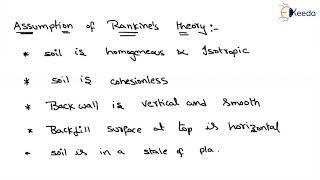 Ekeeda
Assumption of Rankine's theory :-
* soil is homogeneous & Isotropic
* soil is cohesionless
* Back wall is vertical and smooth
* Backfill surface at top is horizontal
* soil is in a state of pla.